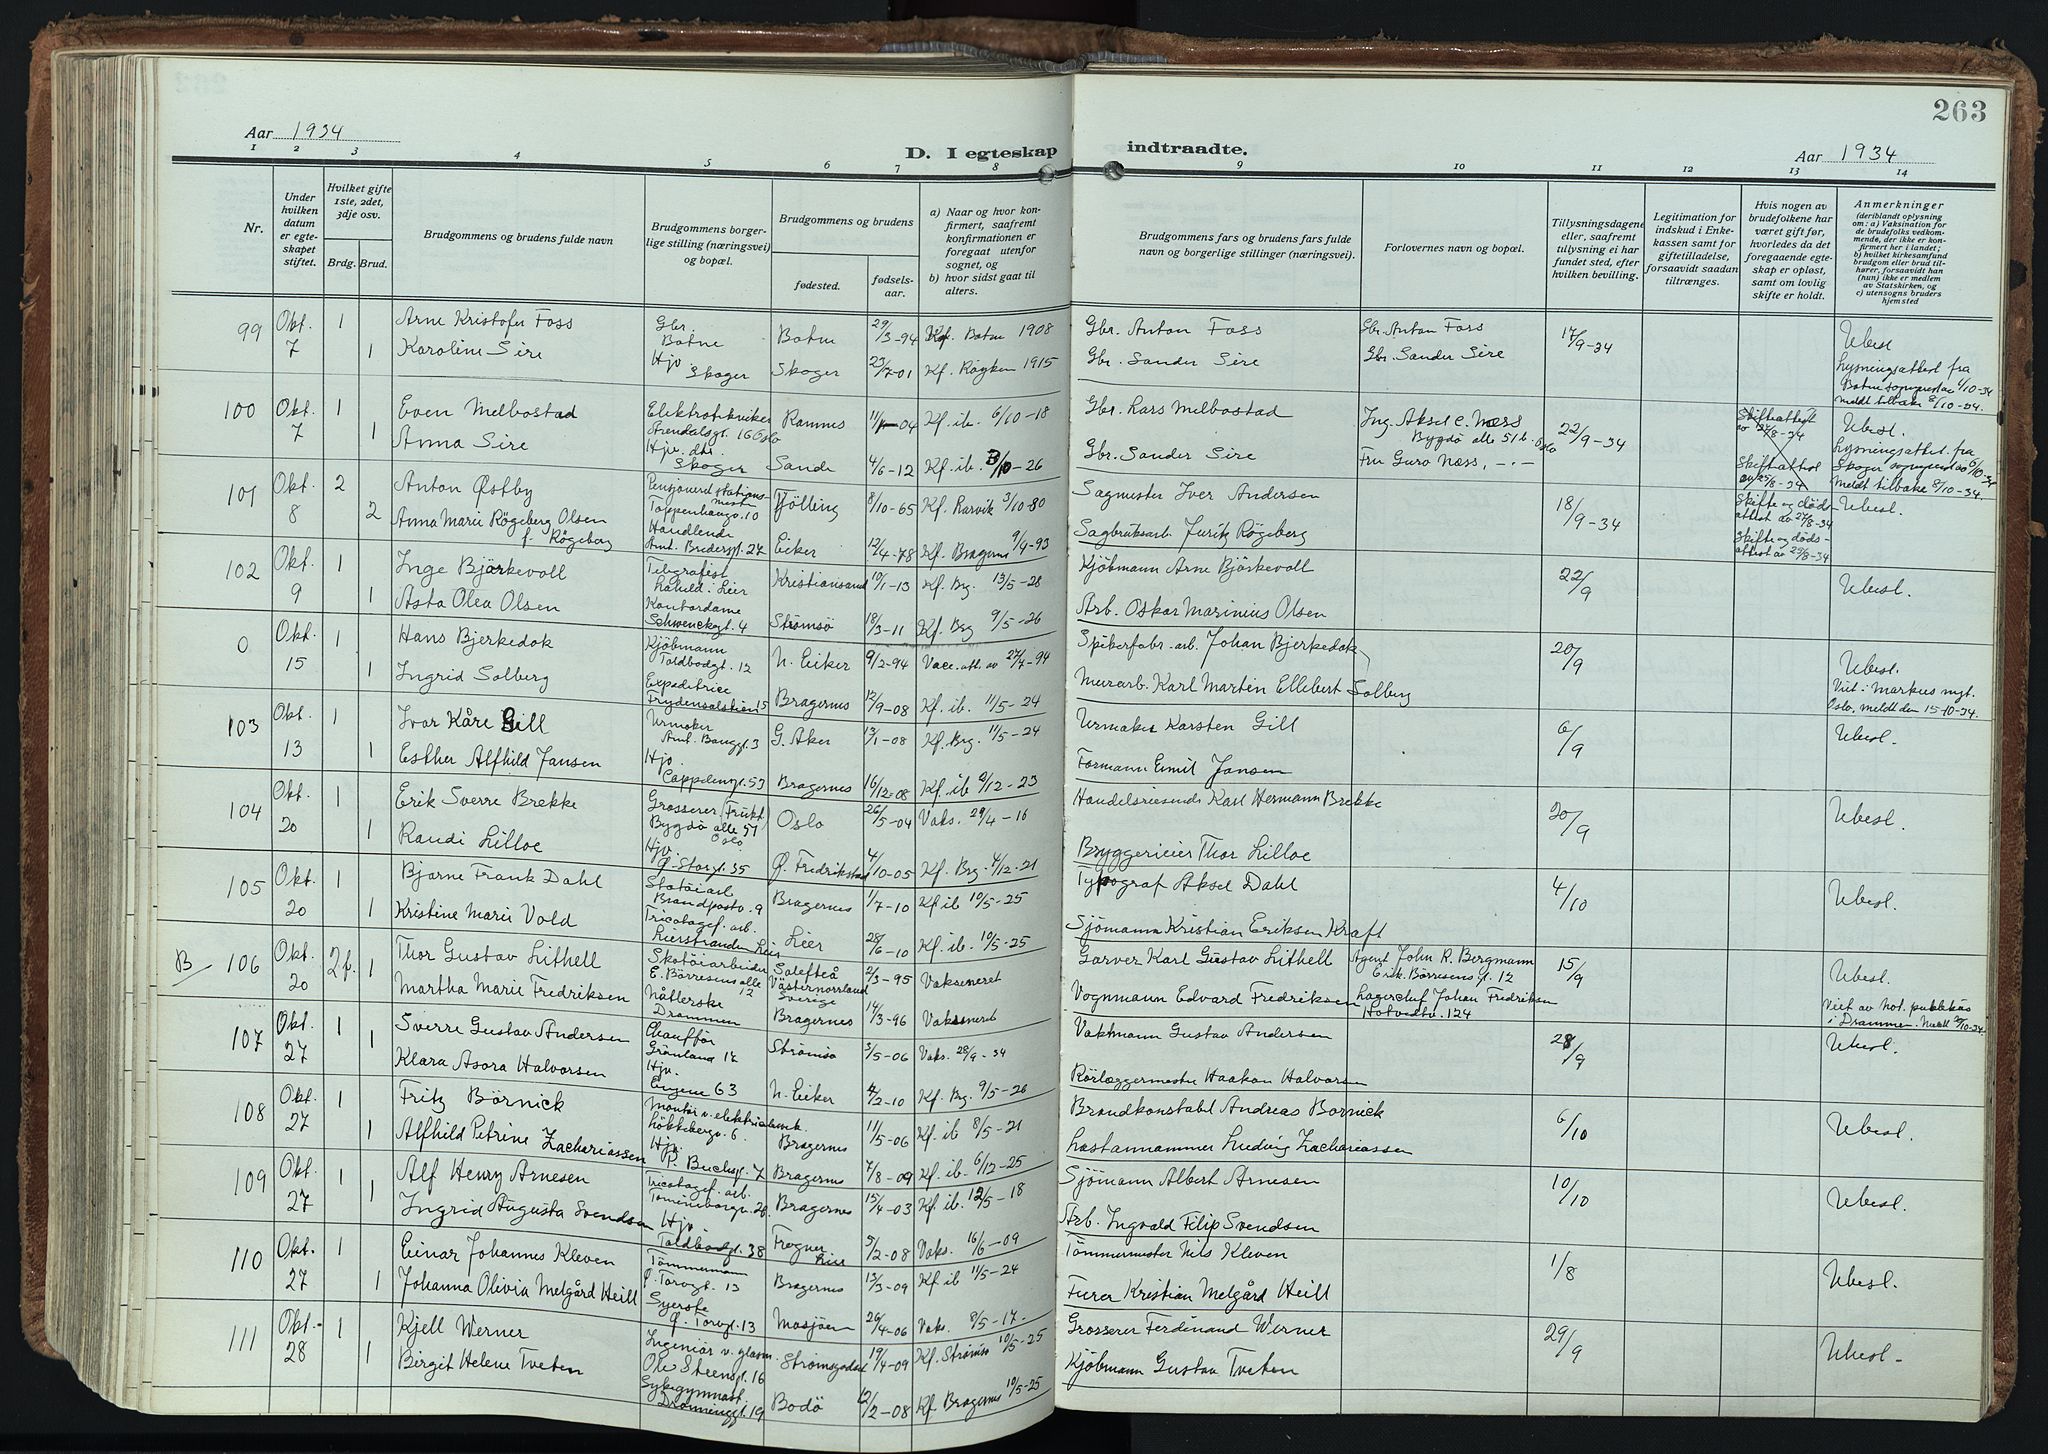 263
Aar 1934
D. I egteskap indtraadte.
Aar 1934
1 2 3 4 5 6 7 8 9 10 11 12 13 14
Nr.
Under hvilken datum er egteskapet stiftet.
Hvilket gifte 1ste, 2det, 3dje osv.
Brdg. Brud.
Brudgommens og brudens fulde navn
Brudgommens borgerlige stilling (næringsvei) og bopæl.
Brudgommens og brudens
fødested.
fødselsaar.
a) Naar og hvor konfirmert, saafremt konfirmationen er foregaat utenfor sognet, og
b) hvor sidst gaat til alters.
Brudgommens fars og brudens fars fulde navn og borgerlige stillinger (næringsvei).
Forlovernes navn og bopæl.
Tillysningsdagene eller, saafremt tillysning ei har fundet sted, efter hvilken bevilling.
Legitimation for indskud i Enkekassen samt for giftetilladelse, forsaavidt saadan tiltrænges.
Hvis nogen av brudefolkene har været gift før, hvorledes da det foregaaende egteskap er opløst, samt om lovlig skifte er holdt.
Anmerkninger
(deriblandt oplysning om: a) Vaksination for de brudefolks vedkommende, der ikke er konfirmert her i landet; b) hvilket kirkesamfund brudgom eller brud tilhører, forsaavidt han (hun) ikke er medlem av Statskirken, og c) utensogns bruders hjemsted
99 Okt. 7 1 Arne Kristofer Foss Gbr. Botne Botne 29/3-94 Kf. Botne 1908 Gbr. Anton Foss Gbr. Anton Foss 17/9-34 Ubesl.
1 Karoline Sire Hjv. Skoger Skoger 23/7-01 Kf. Røyken 1915 Gbr. Sander Sire Gbr. Sander Sire Lysningsattest fra Botne sogneprest meldt tilbake 8/10-34.
100 Okt. 7 1 Even Melbostad Elektrotekniker Arendalsgt. 16 Oslo Ramnes 04 Kf. ib. 6/10-18 Gbr. Lars Melbostad Ing. Aksel C. Næss Bygdö alle 51 b. Oslo 22/9-34 Ubesl.
1 Anna Sire Hjv. Skoger Sande 4/6-12 Kf. ib. 3/10-26 Gbr. Sander Sire Fru Guro Næss, -.- Lysningsattest fra Skoger meldt tilbake 8/10-34.
101 Okt. 8 2 Anton Østby Pensjonert stationsmester Toppenhaugv. 10 Tjölling 8/10-65 Kf. Larvik 3/10-80 Sagmester Iver Andersen 18/9-34 Skifte og dödsattest av 27/8-34 Ubesl.
2 Anna Marie Røgeberg Olsen f. Røgeberg Handlende 27 Eiker 12/4-78 Kf. Bragernes 9/4-93 Sagbruksarb. Røgeberg Skifte og dödsattest av 29/8-34
102 Okt. 9 1 Inge Bjørkevoll Telegrafist Lier Kristiansand 10/1-13 Kf. Brg. 13/5-28 Kjöbmann Arne Bjørkevoll 22/9 Ubesl.
1 Asta Olea Olsen Kontordame Schwenckegt. 4 Strömsö 18/3-11 Kf. Brg 9/5-26 Arb. Oskar Marinius Olsen
0 Okt. 15 1 Hans Bjerkedok Kjöbmann Toldbodgt. 12 N. Eiker 9/2-94 Vacc. att. av 27/4-94 Spikerfabr. arb. Johan Bjerkedok 20/9 Ubesl.
1 Ingrid Solberg Expeditrice 15 Bragernes 12/9-08 Kf. ib. 11/5-24 Murarb. Karl Martin Ellebert Solberg Viet i Markus mgt. Oslo, meldt den 15-10-34.
103 Okt. 13 1 Ivar Kåre Gill Urmaker 3 G. Aker 13/1-08 Kf. Brg. 11/5-24 Urmaker Karsten Gill 6/9 Ubesl.
1 Esther Alfhild Jansen Hjv. Cappelensgt. 53 Bragernes 16/12-08 Kf. ib 9/12-23 Formann Emil Jansen
104 Okt. 20 1 Erik Sverre Brekke Grosserer (Frukt) Bygdö alle 51 Oslo Oslo 26/5-04 Vaks. 29/4-16 Handelsreisende Karl Hermann Brekke 20/9 Ubesl.
1 Randi Lilloe Hjv. Ø. Storgt. 35 Ø. Fredrikstad 4/10-05 Kf. Brg. 4/12-21 Bryggerieier Thor Lilloe
105 Okt. 20 1 Bjarne Frank Dahl Skotöiarb. Brandpostv. 9 Bragernes 1/7-10 Kf ib 10/5-25 Typograf Aksel Dahl 4/10 Ubesl.
1 Kristine Marie Vold Tricotagef. arb. Lierstranden Lier Lier 28/6-10 Kf. ib. 10/5-25 Sjömann Kristian Eriksen Kraft
B 106 Okt. 20 2 f. Thor Gustav Lithell Skotöiarbeider E. Börresens alle 12 Västernorrland Sverige 2/3-95 Vaksineret Garver Karl Gustav Lithell Agent John R. Bergmann Erik Börresens gt. 12 15/9 Ubesl.
1 Martha Marie Fredriksen Nåtlerske Drammen Bragernes 14/3-96 Vaksineret Vognmann Edvard Fredriksen Lagerchef Johan Fredriksen Hotvedtv. 124 Viet av not. publikus i Drammen.
107 Okt. 27 1 Sverre Gustav Andersen Chauffør Grønland Strømsø 3/5-06 Vaks. 28/9-34 Vaktmann Gustav Andersen 28/9 Ubesl.
1 Klara Asora Halvorsen Hjv. Engene 63 N. Eiker 4/2-10 Kf. Brg. 9/5-26 Rörlæggermester Haakon Halvorsen
108 Okt. 27 1 Fritz Börnick Løkkebergv. 6. Bragernes 11/5-06 Kf. ib 8/5-21 Brandkonstabel Andreas Bornick 6/10 Ubesl.
1 Alfhild Petrine Zachariassen Hjv. 7 Bragernes 7/8-09 Kf. ib. 6/12-25 Lastannammer Ludvig Zachariassen
109 Okt. 27 1 Alf Henry Arnesen Tricotagef. arb. Bragernes 15/4-03 Kf. ib. 12/5-18 Sjömann Albert Arnesen 10/10 Ubesl.
1 Ingrid Augusta Svendsen Hjv. Toldbodgt. 38 Frogner Lier 5/2-08 Vaks. 16/6-09 Arb. Ingvald Filip Svendsen
110 Okt. 27 1 Einar Johannes Kleven Tömmermann Ø. Torvgt. 13 Bragernes 13/3-09 Kf. ib 11/5-24 Tömmermester Nils Kleven 1/8 Ubesl.
1 Johanna Olivia Melgård Heill Syerske Ø. Torvgt. 13 Mosjöen 26/4-06 Vaks. 9/5-17. Furer Kristian Melgård Heill
111 Okt. 28 1 Kjell Werner Ingeniör Ole Steensgt. 16 Strömsgodset 19/4-09 Kf. Strömsö 10/5-25 Grosserer Ferdinand Werner 29/9 Ubesl.
1 Birgit Helene Tveten Sykegymnast Dronninggt. 19 Bodö 12/2-08 Kf. Bragernes 10/5-25 Kjöbmann Gustav Tveten